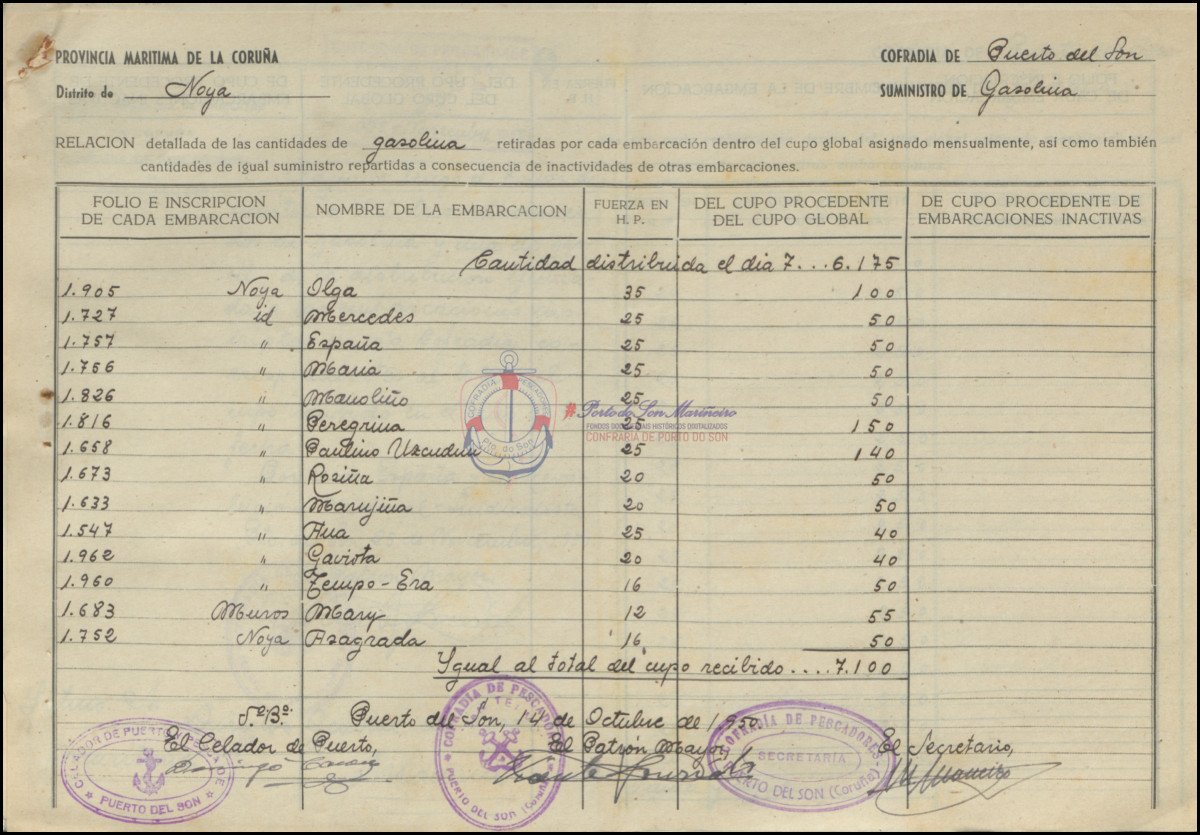 PROVINCIA MARITIMA DE LA CORUÑA
COFRADIA DE Puerto del Son
Distrito de Noya
SUMINISTRO DE Gasolina
RELACION detallada de las cantidades de gasolina retiradas por cada embarcación dentro del cupo global asignado mensualmente, así como también
cantidades de igual suministro repartidas a consecuencia de inactividades de otras embarcaciones.
FOLIO E INSCRIPCION DE CADA EMBARCACION
NOMBRE DE LA EMBARCACION
FUERZA EN H. P.
DEL CUPO PROCEDENTE DEL CUPO GLOBAL
DE CUPO PROCEDENTE DE EMBARCACIONES INACTIVAS
Cantidad distribuida el dia 7...6.175
1.905 Noya Olga 35 100
1.727 id Mercedes 25 50
1.757 " España 25 50
1.756 " Maria 25 50
1.826 " Manoliño 25 50
1.816 " Peregrina 25 150
1.658 " Paulino Uzcudun 25 140
1.673 " Rosiña 20 50
1.633 " Marujiña 20 50
1.547 " Ana 25 40
1.962 " Gaviota 20 40
1.960 " Tempo-Era 16 50
1.683 Muros Mary 12 55
1.752 Noya Asagrada 16 50
Ygual al total del cupo recibido....7.100
Vº Bº: Puerto del Son, 14 de Octubre de 1950
El Celador de Puerto, El Patrón Mayor, El Secretario,
COFRADIA PESCADORES
Pto. do Son
#Porto do Son Mariñeiro
FONDOS DOCUMENTAIS HISTÓRICOS DIXITALIZADOS
CONFRARÍA DE PORTO DO SON
CELADOR DE PUERTO
PUERTO DEL SON
COFRADIA DE PESCADORES
PUERTO DEL SON (Coruña)
COFRADÍA DE PESCADORES
SECRETARIA
PUERTO DEL SON (Coruña)